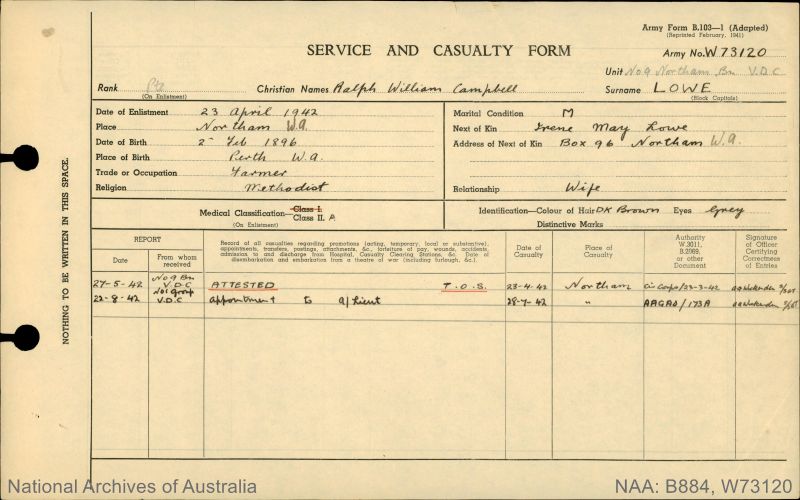 Army Form B.103—1 (Adapted)
(Reprinted February, 1941)
SERVICE AND CASUALTY FORM
Army No. W73120
Unit No 9 Northam Bn V.D.C
Rank Pte
(On Enlistment)
Christian Names Ralph William Campbell
Surname LOWE
(Block Capitals)
Date of Enlistment 23 April 1942
Place Northam W.A.
Date of Birth 2 Feb 1896
Place of Birth Perth W.A.
Trade or Occupation Farmer
Religion Methodist
Marital Condition M
Next of Kin Irene May Lowe
Address of Next of Kin Box 96 Northam W.A.
Relationship Wife
Medical Classification—Class I.
(On Enlistment) Class II. A
Identification—Colour of Hair DK Brown Eyes Grey
Distinctive Marks
NOTHING TO BE WRITTEN IN THIS SPACE.
REPORT
Date
From whom received
Record of all casualties regarding promotions (acting, temporary, local or substantive),
appointments, transfers, postings, attachments, &c., forfeiture of pay, wounds, accidents,
admission to and discharge from Hospital, Casualty Clearing Stations, &c. Date of
disembarkation and embarkation from a theatre of war (including furlough, &c.)
Date of Casualty
Place of Casualty
Authority W.3011, B.2069, or other Document
Signature of Officer Certifying Correctness of Entries
27-5-42 No 9 Bn V.D.C ATTESTED T.O.S. 23-4-42 Northam Corps/23-3-42
22-8-42 No 1 Group V.D.C appointment to a/Lieut 28-7-42 " AAGAO/173A
National Archives of Australia
NAA: B884, W73120